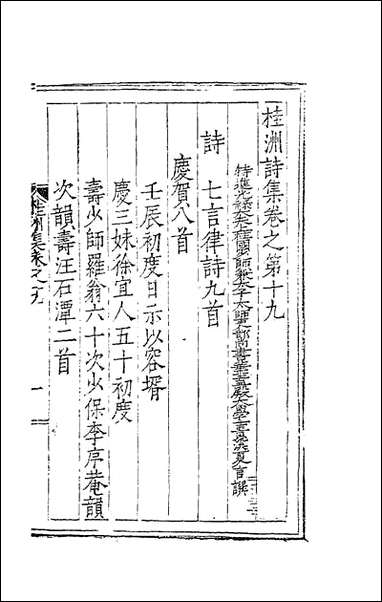 桂洲詩集卷之第十九
特進光祿大夫上柱國少師兼太子太師吏部尚書華蓋殿大學士貴溪夏言譔
詩　七言律詩九首
慶賀八首
壬辰初度日示以容壻
慶三妹徐宜人五十初度
壽少師羅翁六十次少保李序菴韻
次韻壽汪石潭二首
桂洲集卷之十九
一